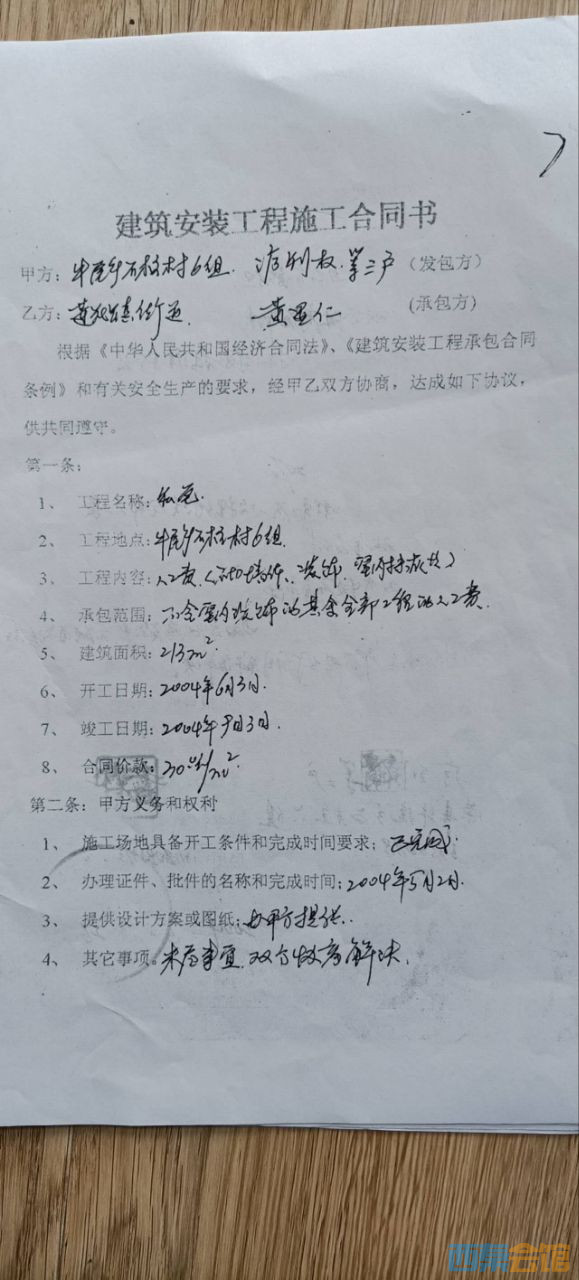 建筑安装工程施工合同书
甲方：牛尾乡石柱村6组. 权.等三户（发包方）
乙方： 黄 仁 (承包方)
根据《中华人民共和国经济合同法》、《建筑安装工程承包合同
条例》和有关安全生产的要求，经甲乙双方协商，达成如下协议，
供共同遵守。
第一条：
1、 工程名称：私宅.
2、 工程地点：牛尾乡石柱村6组.
3、 工程内容：人工费
4、 承包范围：不含室内装饰的其余全部工程的人工费.
5、 建筑面积：213m².
6、 开工日期：2004年6月3日.
7、 竣工日期：2004年9月3日.
8、 合同价款： /m²
第二条：甲方义务和权利
1、 施工场地具备开工条件和完成时间要求；已完成.
2、 办理证件、批件的名称和完成时间；2004年5月2日.
3、 提供设计方案或图纸；由甲方提供.
4、 其它事项。未尽事宜.双方协商解决.
西祠会馆